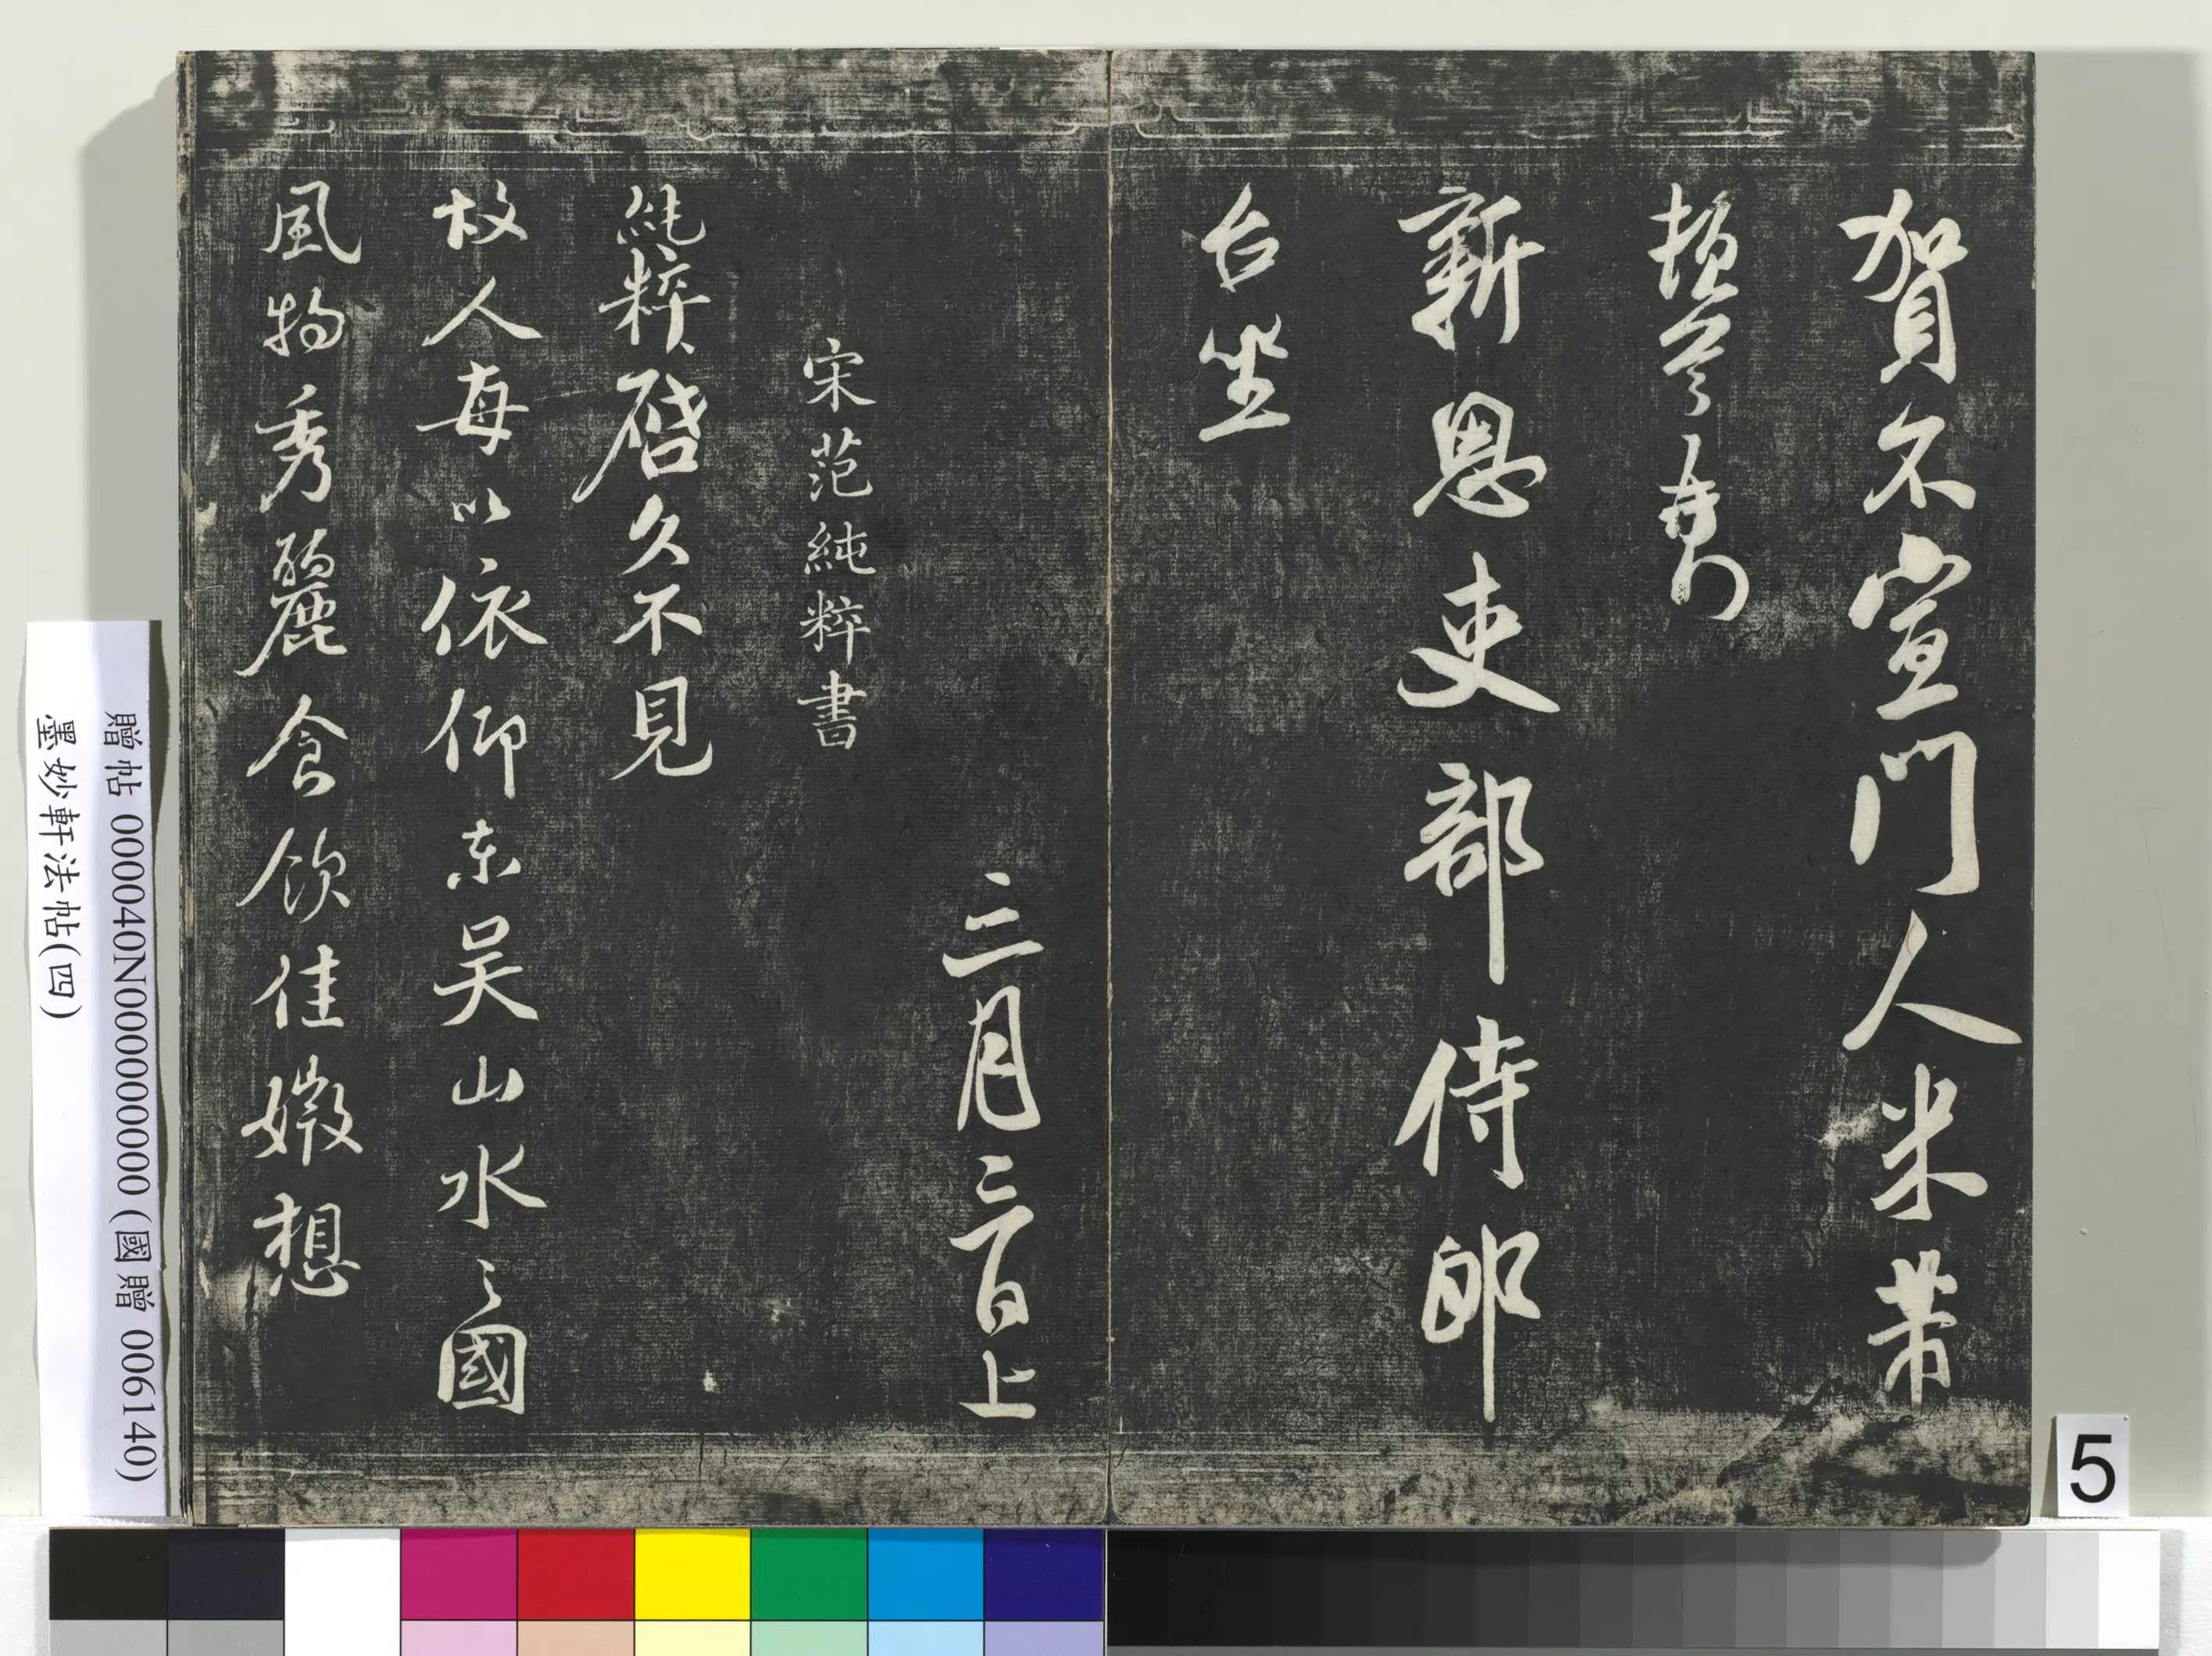 賀不宣門人米芾
頓首再
新恩吏部侍郎
台坐
三月三日上
宋范純粹書
純粹啓久不見
故人每以依仰东吴山水之國
風物秀麗食飲佳媺想
贈帖 000040N000000000 (國贈 006140)
墨妙軒法帖(四)
5